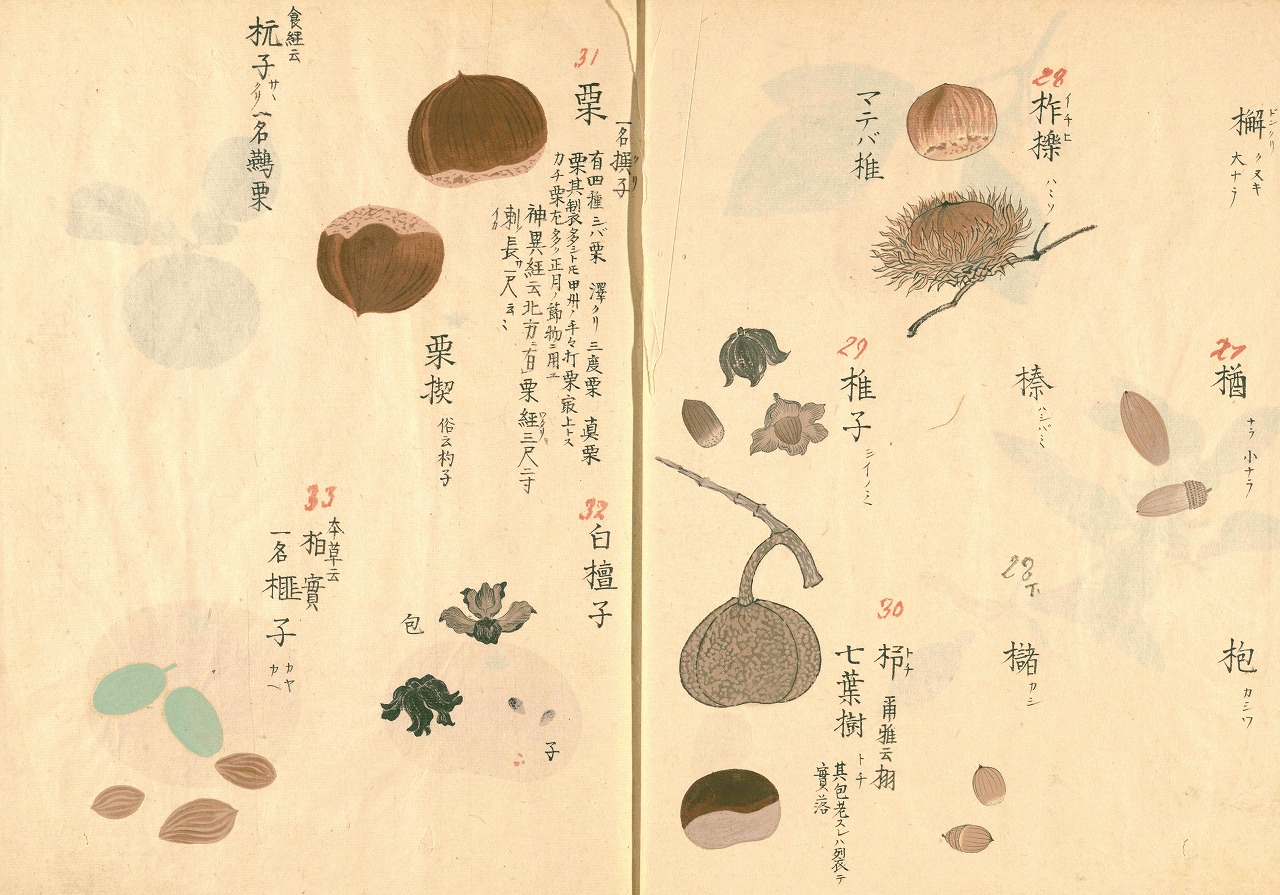 檞 ドングリ クヌキ
大ナラ
27
楢 ナラ 小ナラ
枹 カシワ
28
柞櫟 イチヒ ハミソ
マテバ椎
榛 ハシバミ
28下
櫧 カシ
29
椎子 シイノミ
30
杼 トチ 爾雅云栩
七葉樹 トチ
其包老スレハ裂テ
實落
31
栗 一名撰子 クリ
有四種 ミバ栗 澤クリ 三度栗 真栗
栗其製多シト云トモ甲州ノ手々打栗最上トス
カチ栗左多ク正月ノ節物ニ用ユ
神異経云北方ニ有栗経三尺二寸
刺長一尺云ミ
栗楔 俗云杓子
食経云
杬子 一名鷬栗
32
白檀子
包
子
33
本草云
栢實
一名榧子 カヤ カヘ